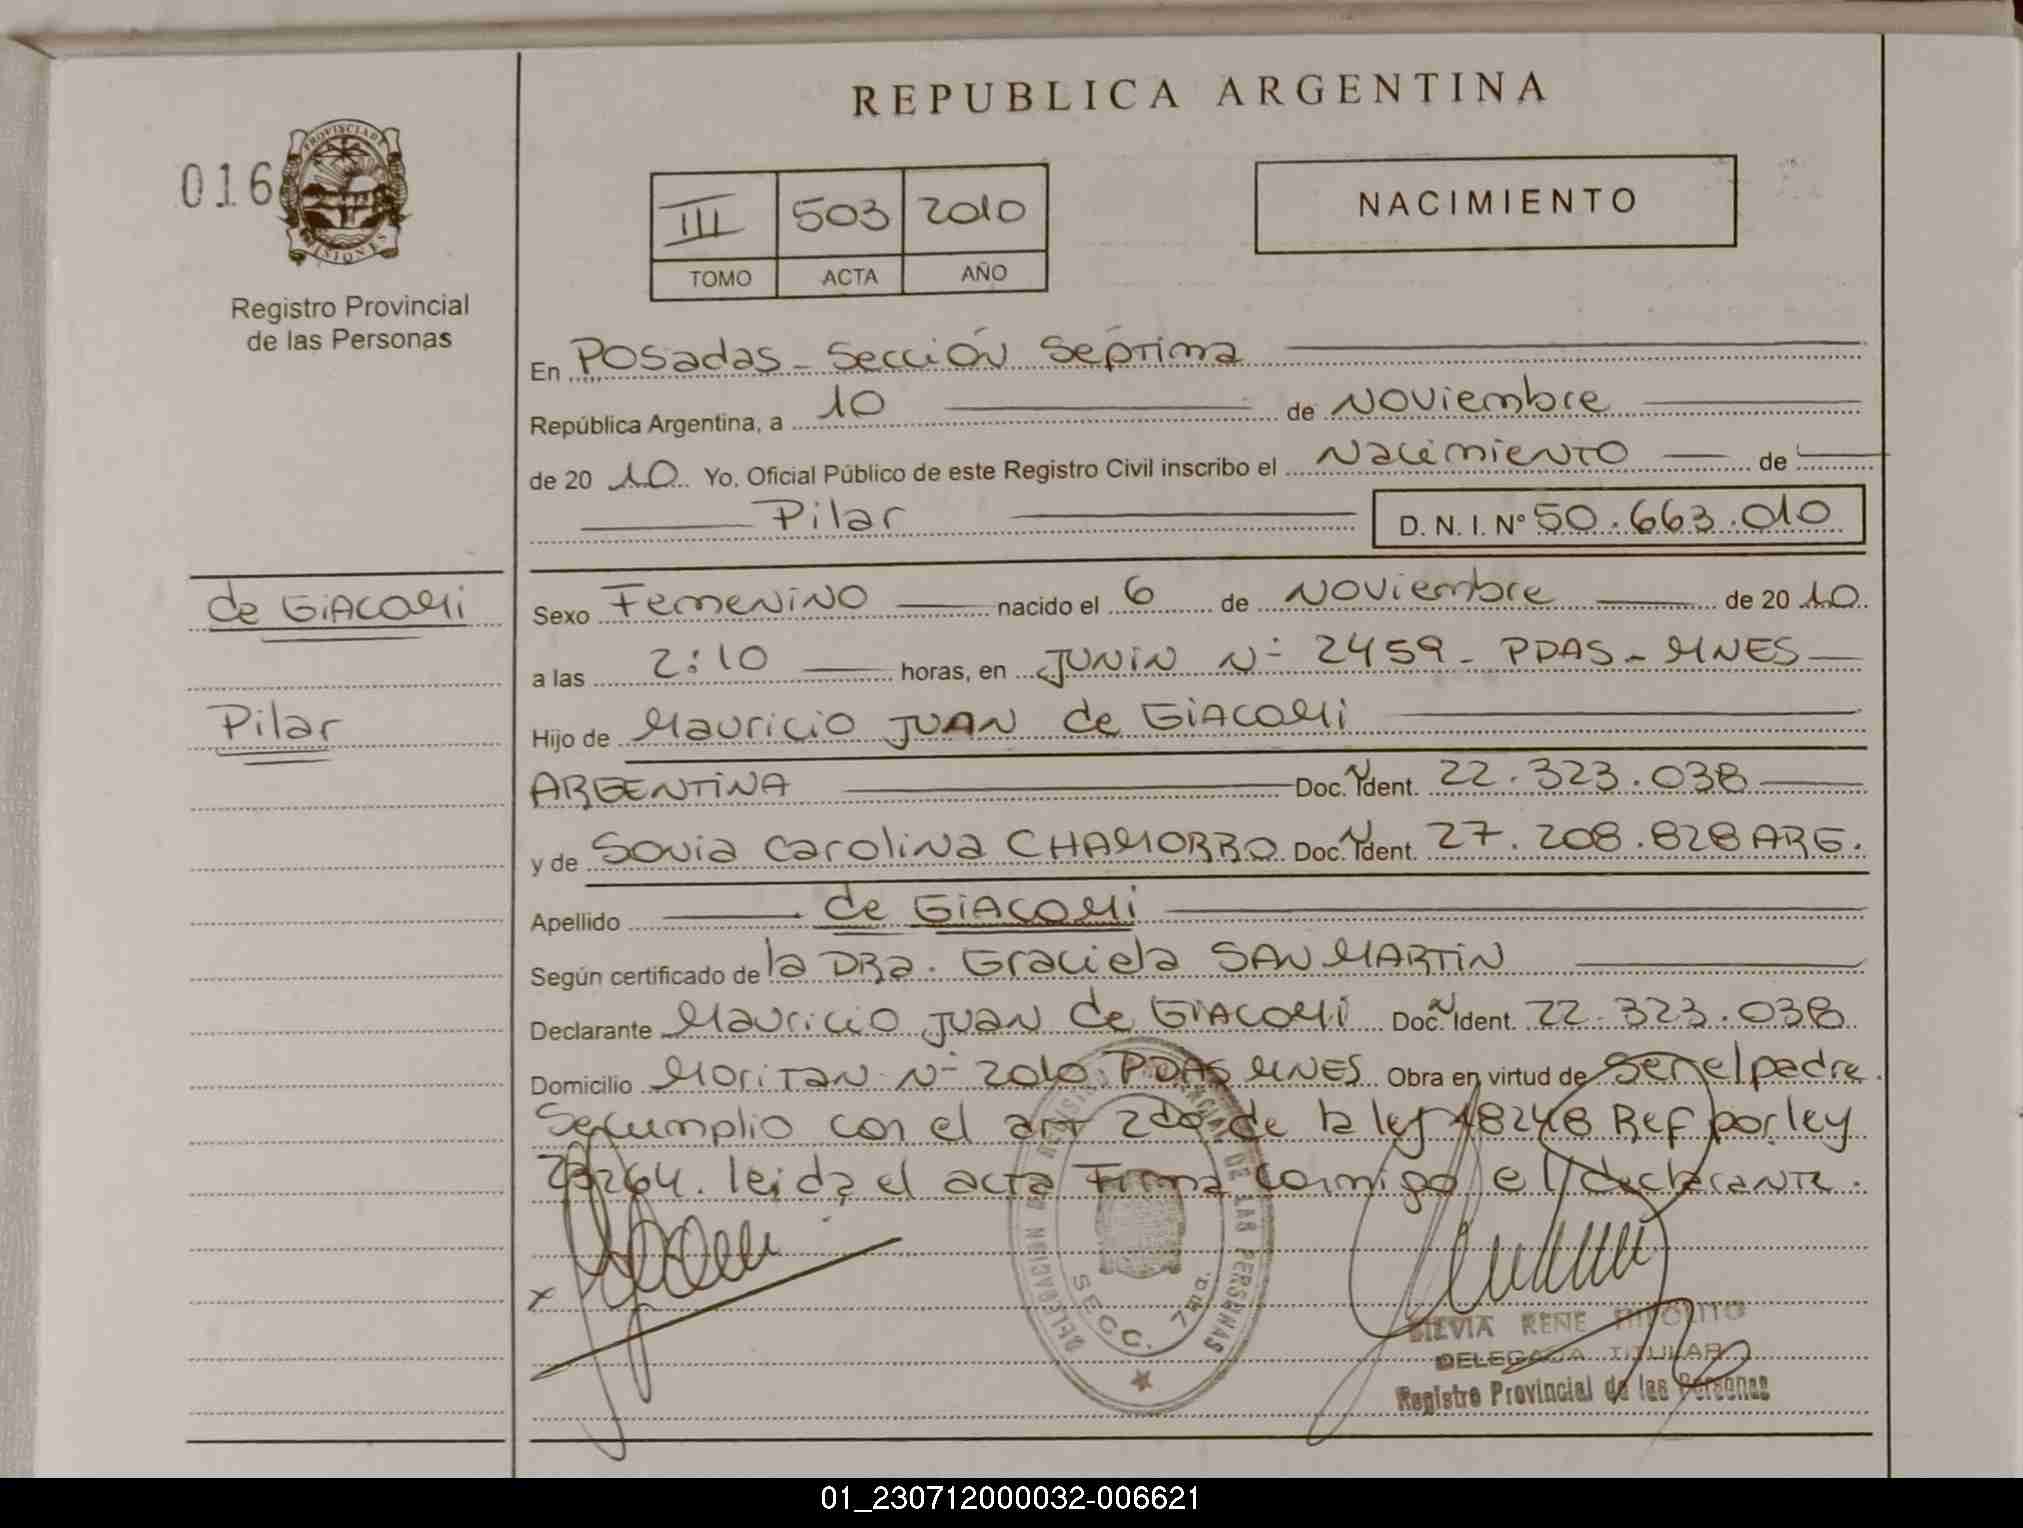 REPUBLICA ARGENTINA
016
PROVINCIA DE MISIONES
Registro Provincial
de las Personas
III 503 2010
TOMO ACTA AÑO
NACIMIENTO
En Posadas - Sección Séptima
República Argentina, a 10 de Noviembre
de 20 10. Yo, Oficial Público de este Registro Civil inscribo el Nacimiento de
Pilar D. N. I. N° 50.663.010
de GiACOMi
Pilar
Sexo Femenino nacido el 6 de Noviembre de 20 10.
a las 2:10 horas, en JUNIN N° 2459 - PDAS - MNES
Hijo de Mauricio JUAN de GiACOMi
ARGENTINA Doc. Ident. 22.323.038
y de Sonia Carolina CHAMORRO Doc. Ident. 27.208.828 ARG.
Apellido de GiACOMi
Según certificado de la DRa. Graciela SAN MARTIN
Declarante Mauricio JUAN de GiACOMi Doc. Ident. 22.323.038
Domicilio MORITAN N° 2010. PDAS MNES Obra en virtud de Ser el padre.
Se cumplio con el art 2do de la ley 18248 Ref por ley
23264. leida el acta Firma conmigo el declarante.
x
DELEGACION DEL REGISTRO PROVINCIAL DE LAS PERSONAS
SECC. 7ma.
SILVIA RENE HIPOLITO
DELEGADA TITULAR
Registro Provincial de las Personas
01_230712000032-006621